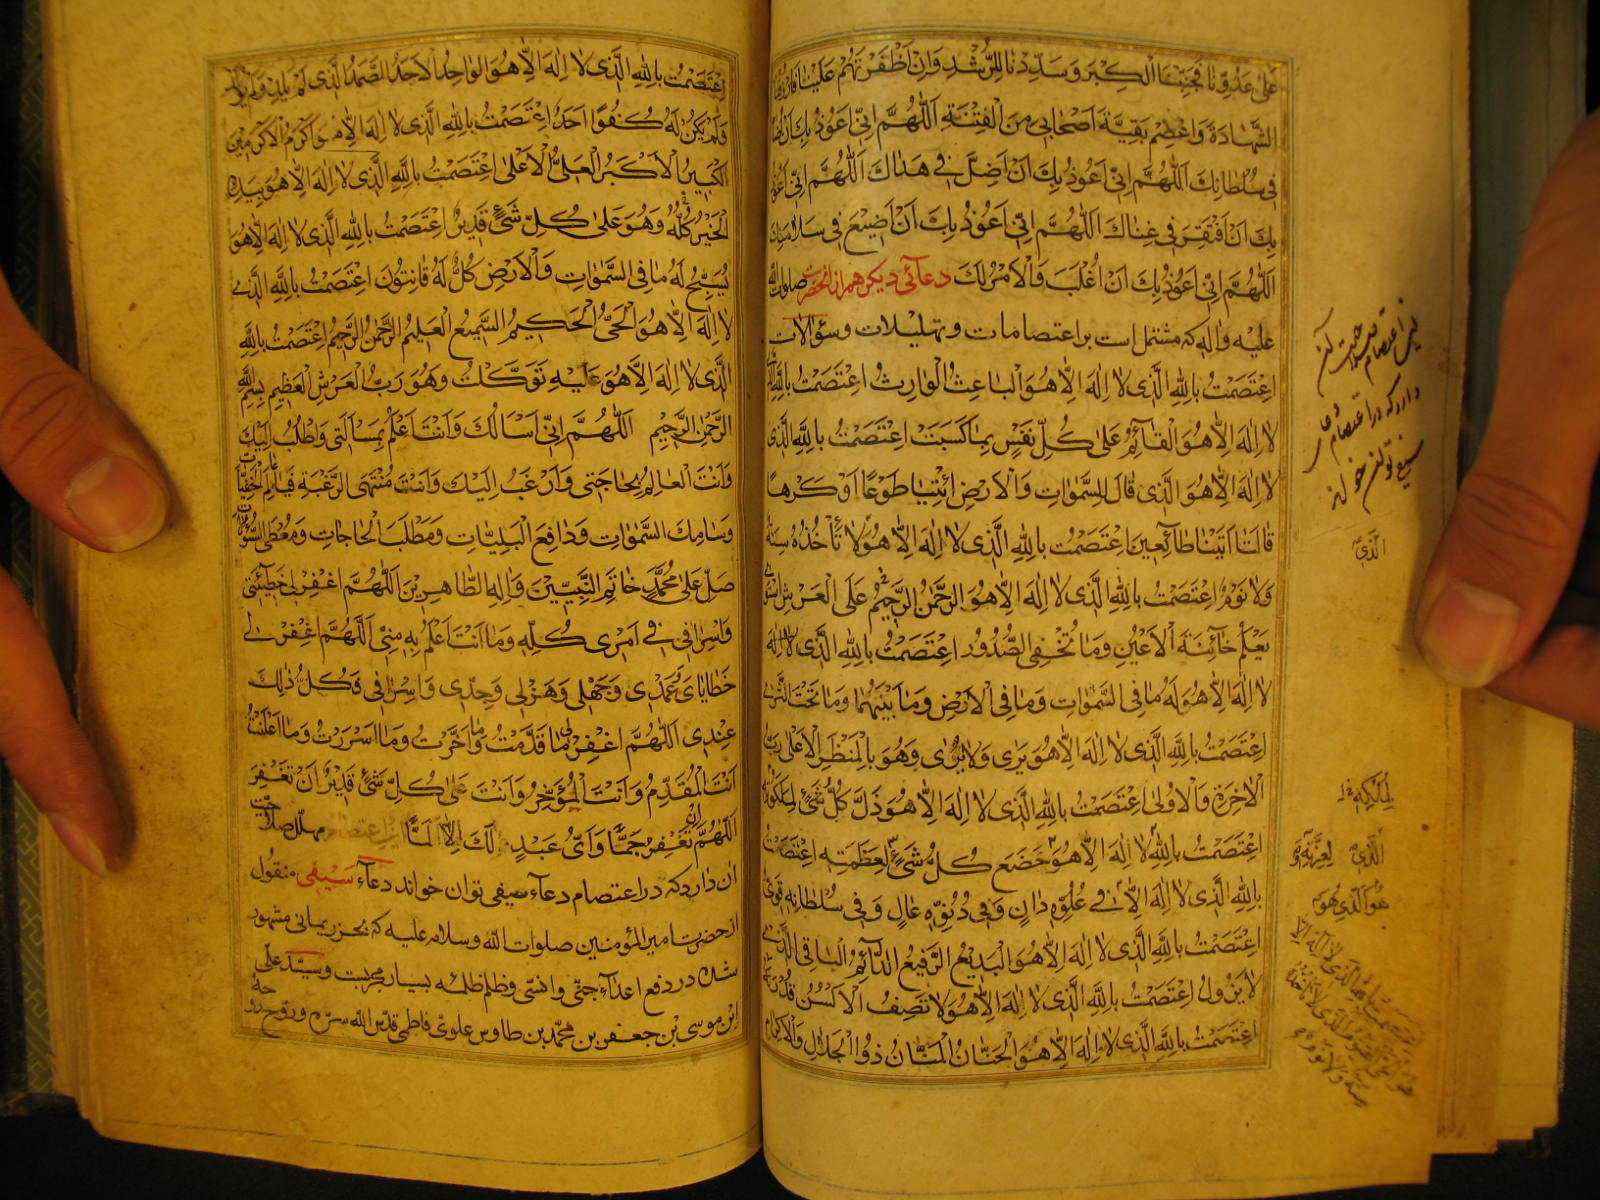 على عدونا فجنبنا الكبر وسددنا للرشد وان اظفرتهم علينا فارزقنا
الشهادة واعصم بقية اصحابي من الفتنة اللهم اني اعوذ بك ان
في سلطانك اللهم اني اعوذ بك ان اضل في هداك اللهم اني اعوذ
بك ان افتقر في غناك اللهم اني اعوذ بك ان اضيع في سلامتك
اللهم اني اعوذ بك ان اغلب والامر لك دعائي ديكر هم از انحضرت صلوات الله
عليه واله كه مشتمل است بر اعتصامات وتهليلات وسؤالات
اعتصمت بالله الذي لا اله الا هو الباعث الوارث اعتصمت بالله الذي
لا اله الا هو القائم على كل نفس بما كسبت اعتصمت بالله الذي
لا اله الا هو الذي قال للسموات والارض ائتيا طوعا او كرها
قالتا اتينا طائعين اعتصمت بالله الذي لا اله الا هو لا تأخذه سنة
ولا نوم اعتصمت بالله الذي لا اله الا هو الرحمن الرحيم على العرش استوى
يعلم خائنة الاعين وما تخفي الصدور اعتصمت بالله الذي لا اله
لا اله الا هو له ما في السموات وما في الارض وما بينهما وما تحت الثرى
اعتصمت بالله الذي لا اله الا هو يرى ولا يرى وهو بالمنظر الاعلى رب
الاخرة والاولى اعتصمت بالله الذي لا اله الا هو ذل كل شئ لملكه
اعتصمت بالله لا اله الا هو خضع كل شئ لعظمته اعتصمت
بالله الذي لا اله الا في علوه دان وفي دنوه عال وفي سلطانه قوي
اعتصمت بالله الذي لا اله الا هو البديع الرفيع الدائم الباقي الذي
لا يزول اعتصمت بالله الذي لا اله الا هو لا تصف الالسن قدرته
اعتصمت بالله الذي لا اله الا هو الحنان المنان ذو الجلال والاكرام
الذي
لملكه
الذي لعزته و
هو الذي هو
اعتصمت بالله الذي لا اله الا هو الواحد الاحد الصمد الذي لم يلد ولم يولد
ولم يكن له كفوا احد اعتصمت بالله الذي لا اله الا هو اكرم الاكرمين
الكبير الاكبر العلي الاعلى اعتصمت بالله الذي لا اله الا هو بيده
الخير كله وهو على كل شئ قدير اعتصمت بالله الذي لا اله الا هو
يسبح له ما في السموات والارض كل له قانتون اعتصمت بالله الذي
لا اله الا هو الحي الحكيم السميع العليم الرحمن الرحيم اعتصمت بالله
الذي لا اله الا هو عليه توكلت وهو رب العرش العظيم بسم الله
الرحمن الرحيم اللهم اني اسالك وانت اعلم بمسالتي واطلب اليك
وانت العالم بحاجتي وارغب اليك وانت منتهى الرغبة فيا عالم الخفيات
وسامك السموات ودافع البليات ومطلب الحاجات ومعطي السؤلات
صل على محمد خاتم النبيين واله الطاهرين اللهم اغفر لي خطيئتي
واسرافي في امري كله وما انت اعلم به مني اللهم اغفر لي
خطاياي وعمدي وجهلي وهزلي وجدي واسرافي فكل ذلك
عندي اللهم اغفر لي ما قدمت وما اخرت وما اسررت وما اعلنت
انت المقدم وانت المؤخر وانت على كل شئ قدير ان تغفر
اللهم تغفر جما واي عبد لك الا لما
ان دارد كه در اعتصام دعاء سيفي توان خواند دعاء سيفي منقول
از حضرت امير المؤمنين صلوات الله وسلامه عليه كه بحرز يماني مشهور
شده در دفع اعداء جني وانسي وظلم ظلمه بسيار مجربست وسيد على
ابن موسى بن جعفر بن محمد بن طاوس علوي فاطمي قدس الله سره وروح روحه